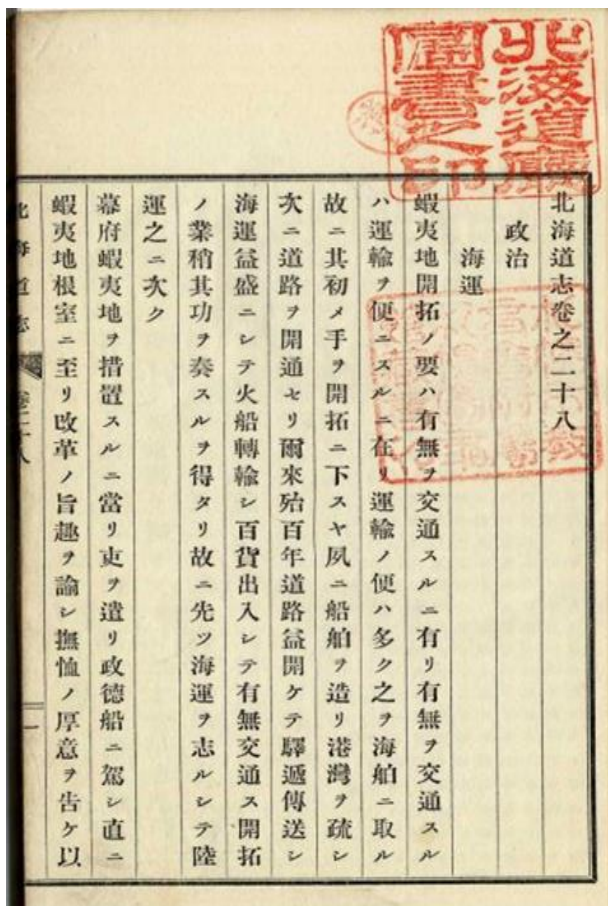 北海道廳
圖書之印
北海道志卷之二十八
政治
海運
蝦夷地開拓ノ要ハ有無ヲ交通スルニ有リ有無ヲ交通スル
ハ運輸ヲ便ニスルニ在リ運輸ノ便ハ多ク之ヲ海舶ニ取ル
故ニ其初メ手ヲ開拓ニ下スヤ夙ニ船舶ヲ造リ港灣ヲ疏シ
次ニ道路ヲ開通セリ爾來殆百年道路益開ケテ驛遞傳送シ
海運益盛ニシテ火船轉輸シ百貨出入シテ有無交通ス開拓
ノ業稍其功ヲ奏スルヲ得タリ故ニ先ツ海運ヲ志ルシテ陸
運之ニ次ク
幕府蝦夷地ヲ措置スルニ當リ吏ヲ遣リ政德船ニ駕シ直ニ
蝦夷地根室ニ至リ改革ノ旨趣ヲ諭シ撫恤ノ厚意ヲ告ケ以
北海道志 卷二十八 一